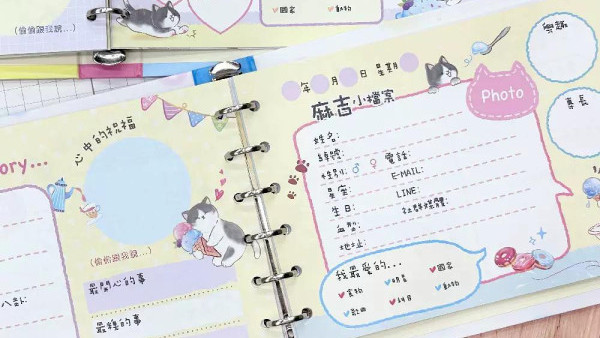 (偷偷跟我說...)
♥國家 ♥動物
心中的祝福
ory...
(偷偷跟我說...)
最開心的事
八卦:
最糗的事
年 月 日 星期
麻吉小檔案
Photo
姓名:
綽號:
性別:♂ ♀ 電話:
星座: E-MAIL:
生日: LINE:
血型: 社群媒體:
地址:
我最愛的...
♥食物 ♥明星 ♥國家
♥歌曲 ♥科目 ♥動物
興趣
專長